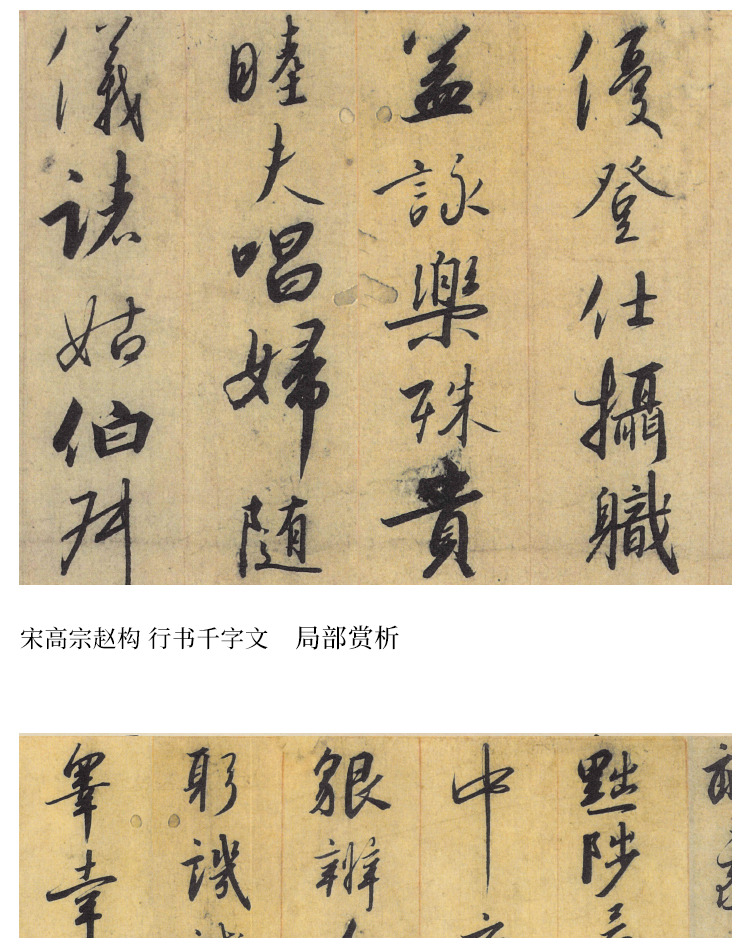 優登仕攝職
益詠樂殊貴
睦夫唱婦随
儀諸姑伯叔
宋高宗赵构 行书千字文 局部赏析
黜陟
中
貌辨
躬譏
皋幸